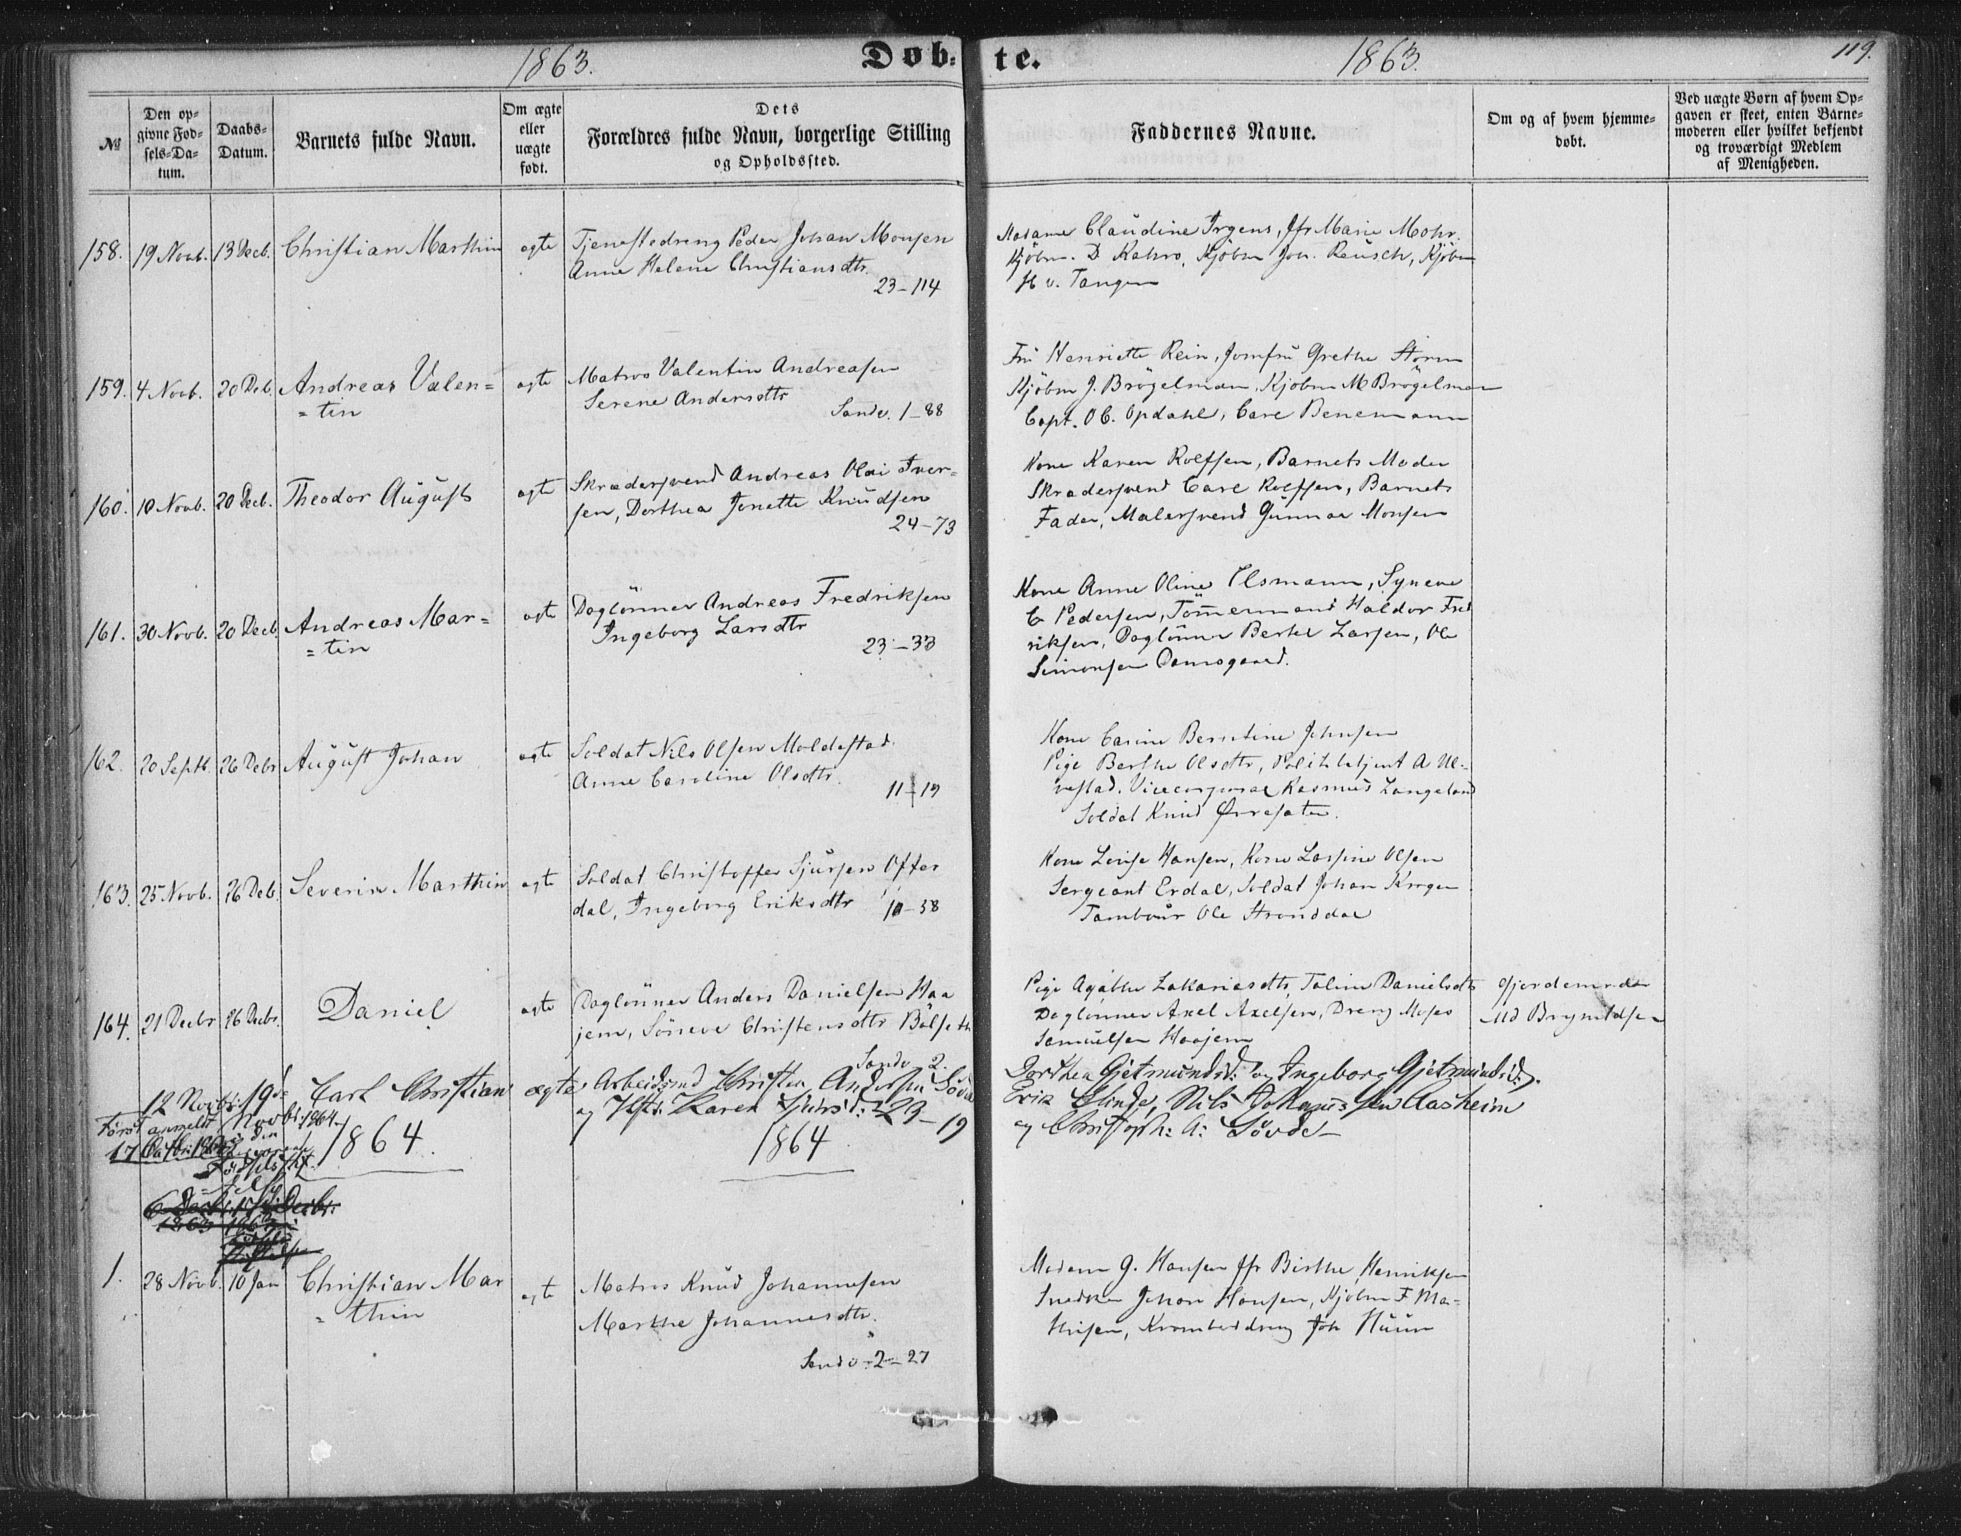 1863.
Døb-
te.
1863.
119.
№
Den op-
givne Fød-
sels-Da-
tum.
Daabs-
Datum.
Barnets fulde Navn.
Om ægte
eller
uægte
født.
Dets
Forældres fulde Navn, borgerlige Stilling
og Opholdssted.
Faddernes Navne.
Om og af hvem hjemme-
døbt.
Ved uægte Børn af hvem Op-
gaven er skeet, enten Barne-
moderen eller hvilket bekjendt
og troværdigt Medlem
af Menigheden.
158. 19 Novb. 13 Decb. Christian Marthin ægte
Tjenestedreng Peder Johan Monsen
Anne Helene Christiansdtr.
23-114
Madame Claudine Irgens, Jfr Marie Mohr.
Kjøbm. D Kahrs, Kjøbm Joh. Reusch, Kjøbm
H v. Tangen
159. 4 Novb. 20 Deb. Andreas Valen=
=tin
ægte
Matros Valentin Andreasen
Serene Andersdtr
Sandv. 1-88
Fru Henriette Rein, Jomfru Grethe Storm
Kjøbm J. Brøgelman, Kjøbm M Brøgelman
Capt. O C. Opdahl, Carl Benemann
160. 10 Novb. 20 Decb. Theodor August ægte
Skrædersvend Andreas Olai Iver-
sen, Dorthea Jonette Knudsen
24-73
Kone Karen Rolfsen, Barnets Moder
Skrædersvend Carl Rolfsen, Barnets
Fader, Malersvend Gunnar Monsen
161. 30 Novb. 20 Decb. Andreas Mar=
=tin
ægte
Daglønner Andreas Fredriksen
Ingeborg Larsdtr
23-33
Kone Anne Oline Elsmann, Syneve
C Pedersen, Tømmermand Haldor Fred
riksen, Daglønner Berthel Larsen, Ole
Simonsen Damsgaard.
162. 20 Septb. 26 Debr August Johan ægte
Soldat Nils Olsen Moldestad
Anne Caroline Olsdtr.
11-19
Kone Carine Berntine Johnsen
Pige Berthe Olsdtr, Politibetjent A Ul-
vestad. Vicecorporal Rasmus Langeland
Soldat Knud
163. 25 Novb. 26 Deb. Severin Marthin ægte
Soldat Christoffer Sjursen Ofter
dal, Ingeborg Eriksdtr 10-58
Kone Lovise Hansen, Kone Larsine Olsen
Sergeant Erdal, Soldat Johan Kroger
Tambour Ole Stranddal
164. 21 Decbr 26 Decbr. Daniel ægte
Daglønner Anders Danielsen Haa
jem, Søneve Christensdtr Bølset
Sandv 2.
Pige Agathe Zakariasdtr, Taline Danielsdtr
Dagløner Axel Axelsen, Dreng Moses
Samuelsen Haajem
Gjordemoder
Md Brynildsen
12 Novbr: 19de
Novbr: 1864
Carl Christian ægte
Arbeidsmd Christen Andersen Søvde
og Hst. Karen Sjursd: 23-19
Dorthea Gjetmundsd: og Ingeborg Gjetmundsd:.
Erik Slinde, Nils Johannessen Aasheim
og Christoph: A: Søvde-
Først anmeldt
17
1864.
1864
6 Decbr:
1863 1863
1. 28 Novb. 10 Jan Christian Mar
=thin
ægte
Matros Knud Johannesen
Marthe Johannesdtr.
Sandv-2-27
Madam G. Hansen Jfr Birthe Henriksen
Snedker Johan Hansen, Kjøbm F. Ma-
thisen, Krambeddreng Joh Huun